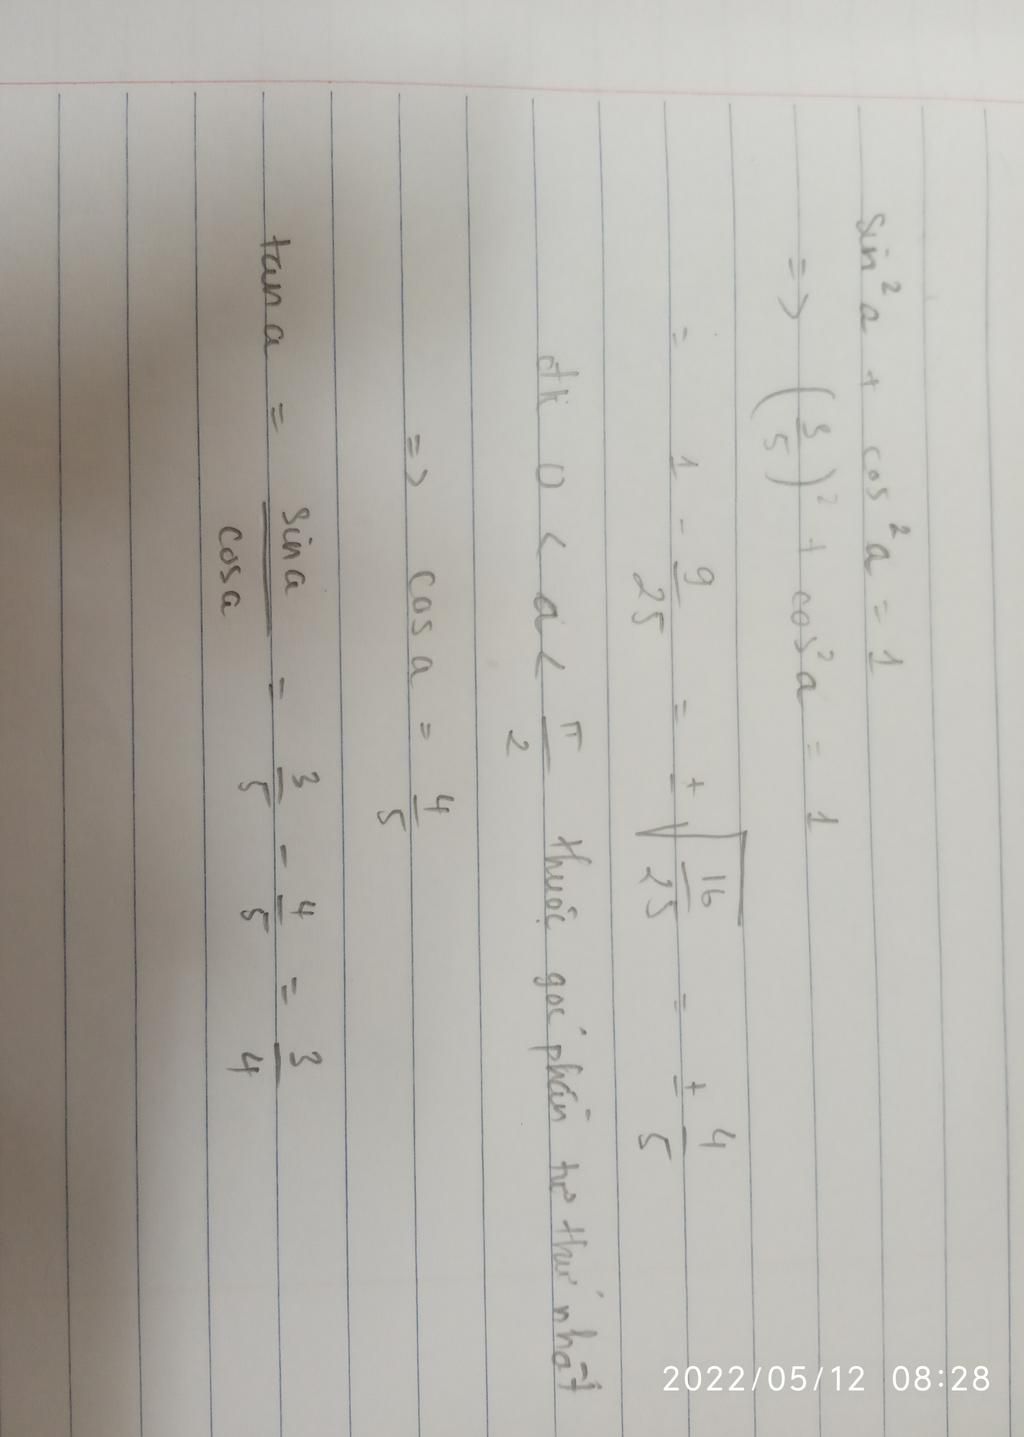 sin²a + cos²a = 1
=> (3/5)² + cos²a = 1
= 1 - 9/25 = ±√(16/25) = ± 4/5
đk 0 < a < π/2 thuộc góc phần tư thứ nhất
=> cos a = 4/5
tan a = sin a / cos a = 3/5 - 4/5 = 3/4
2022/05/12 08:28